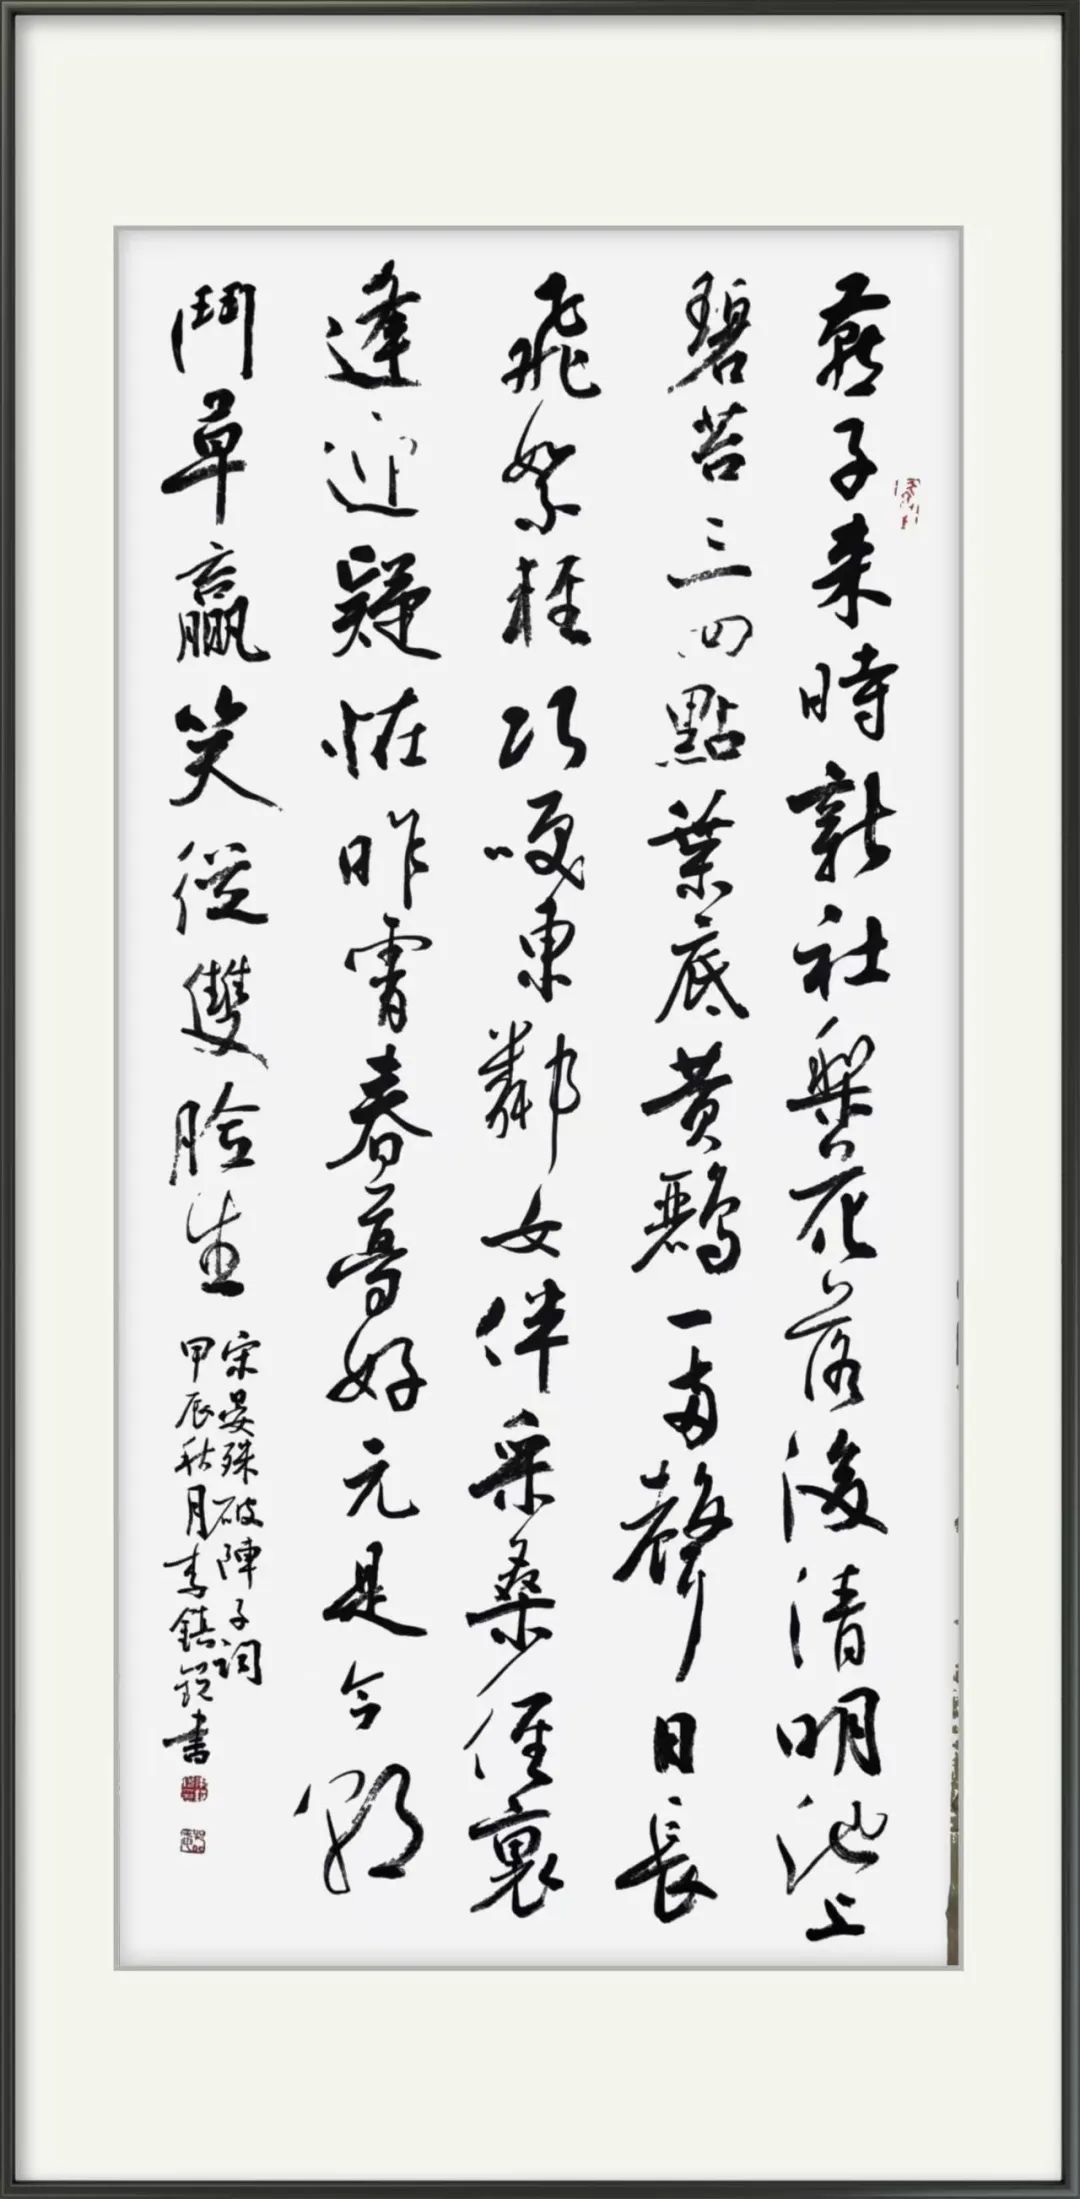 燕子来時新社梨花落後清明池上
碧苔三四點葉底黄鸝一兩聲日長
飛絮輕巧咲東鄰女伴采桑徑裏
逢迎疑怪昨宵春夢好元是今朝
鬥草贏笑從雙臉生
宋晏殊破陣子詞
甲辰秋月李鎮書